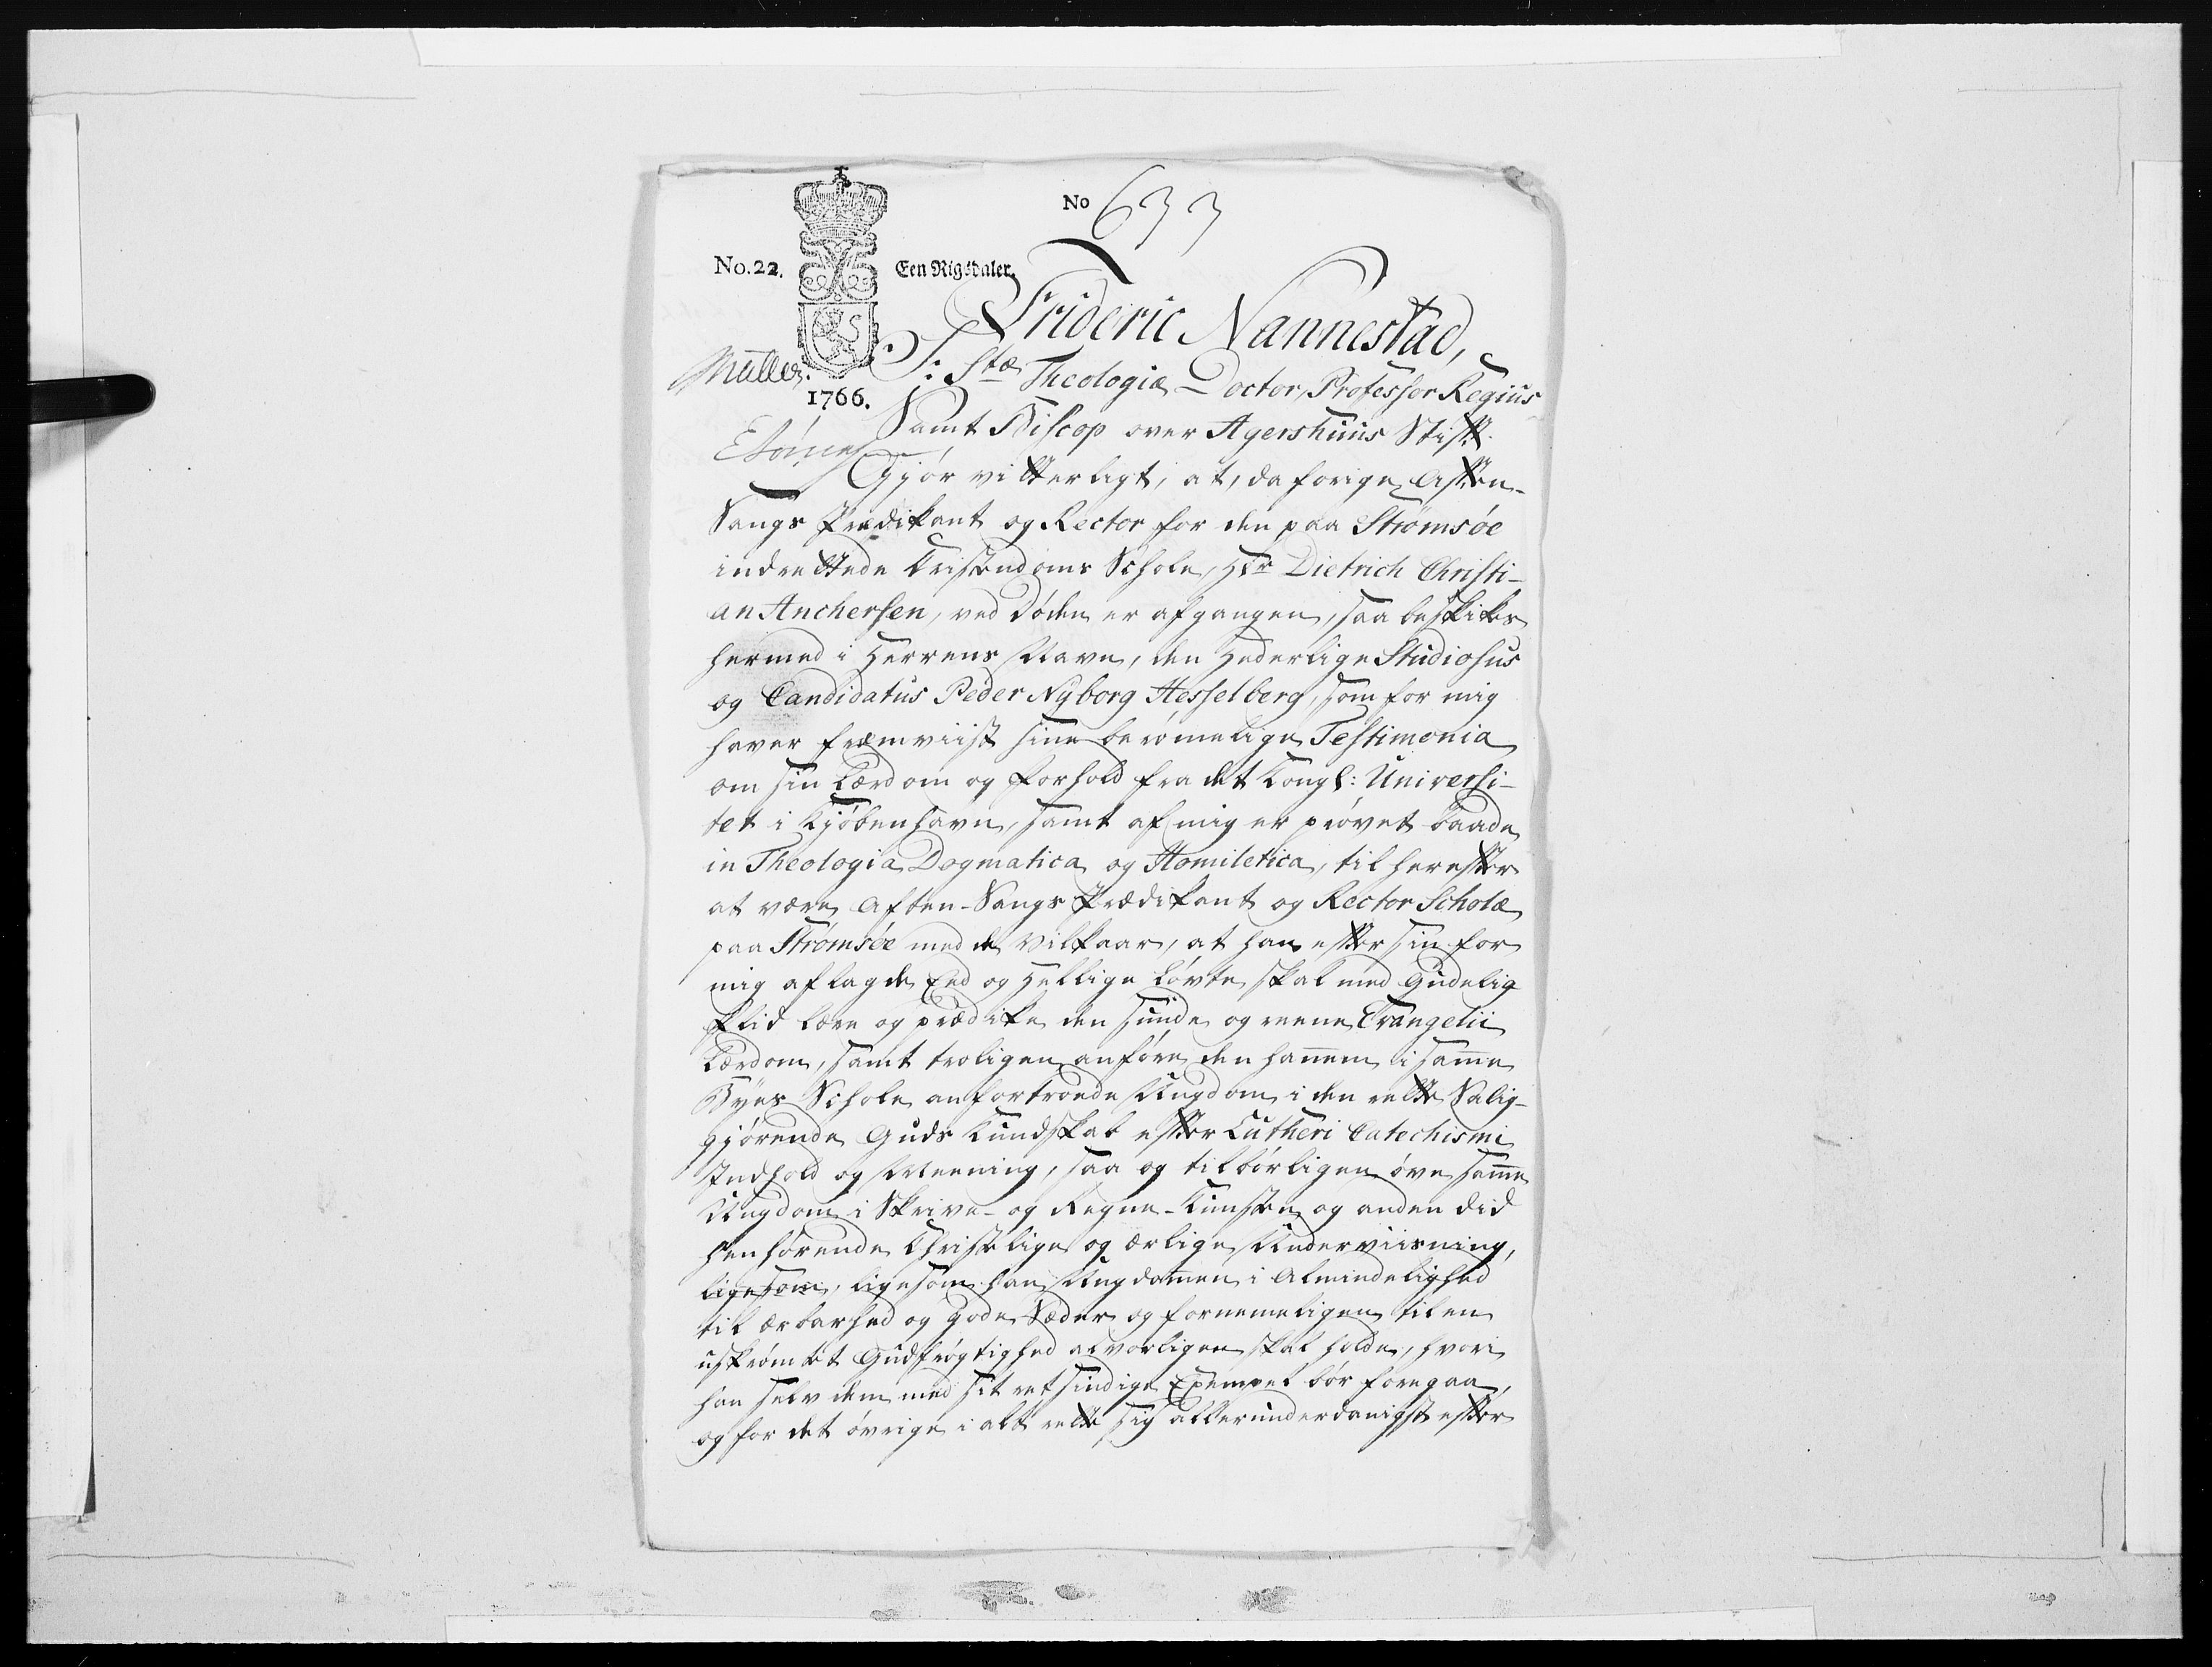 No 633
No. 22.
Een Rigsdaler.
Frideric Nannestad,
Müller.
S: Stæ Theologiæ Doctor, Professor Regius
1766.
Samt Biscop over Agershuus Stift.
Gjør vitterligt, at, da forige Aften-
Sangs Prædikant og Rector for den paa Strømsøe
indrettede Kristendoms Schole, Hr Dietrich Christi-
an Anchersen, ved Døden er afgangen, saa beskikes
hermed i Herrens Navn, den Hederlige Studiosus
og Candidatus Peder Nyborg Hesselberg, som for mig
haver fremviist sine berømelige Testimonia
om sin Lærdom og Forhold fra det Kongl: Universi-
tet i Kjøbenhavn, samt af mig er prøvet baade
in Theologia Dogmatica og Homiletica, til herefter
at være Aften-Sangs Prædikant og Rector Scholæ
paa Strømsøe med de Vilkaar, at han efter sin for
mig aflagde Eed og Hellige Løvte, skal med Gudelig
Flid lære og prædike den sunde og reene Evangelii
Lærdom, samt troligen anføre den hannem i samme
Byes Schole anfortroede Ungdom i den rette Salig-
gjørende Guds Kundskab efter Lutheri Catechismi
Indhold og Meening, saa og tilbørligen øve samme
Ungdom i Skrive- og Regne-Kunsten og anden did
henhørende Christelige og ærlige Underviisning,
ligesom, ligesom han Ungdommen i Almindelighed
til ærbarhed og gode Sæder og fornemmeligen til en
uskrømtet Gudfrøgtighed alvorligen skal holde, hvori
han selv dem med sit retsindige Exempel bør foregaa,
og for det øvrige i alt rette sig allerunderdanigst efter